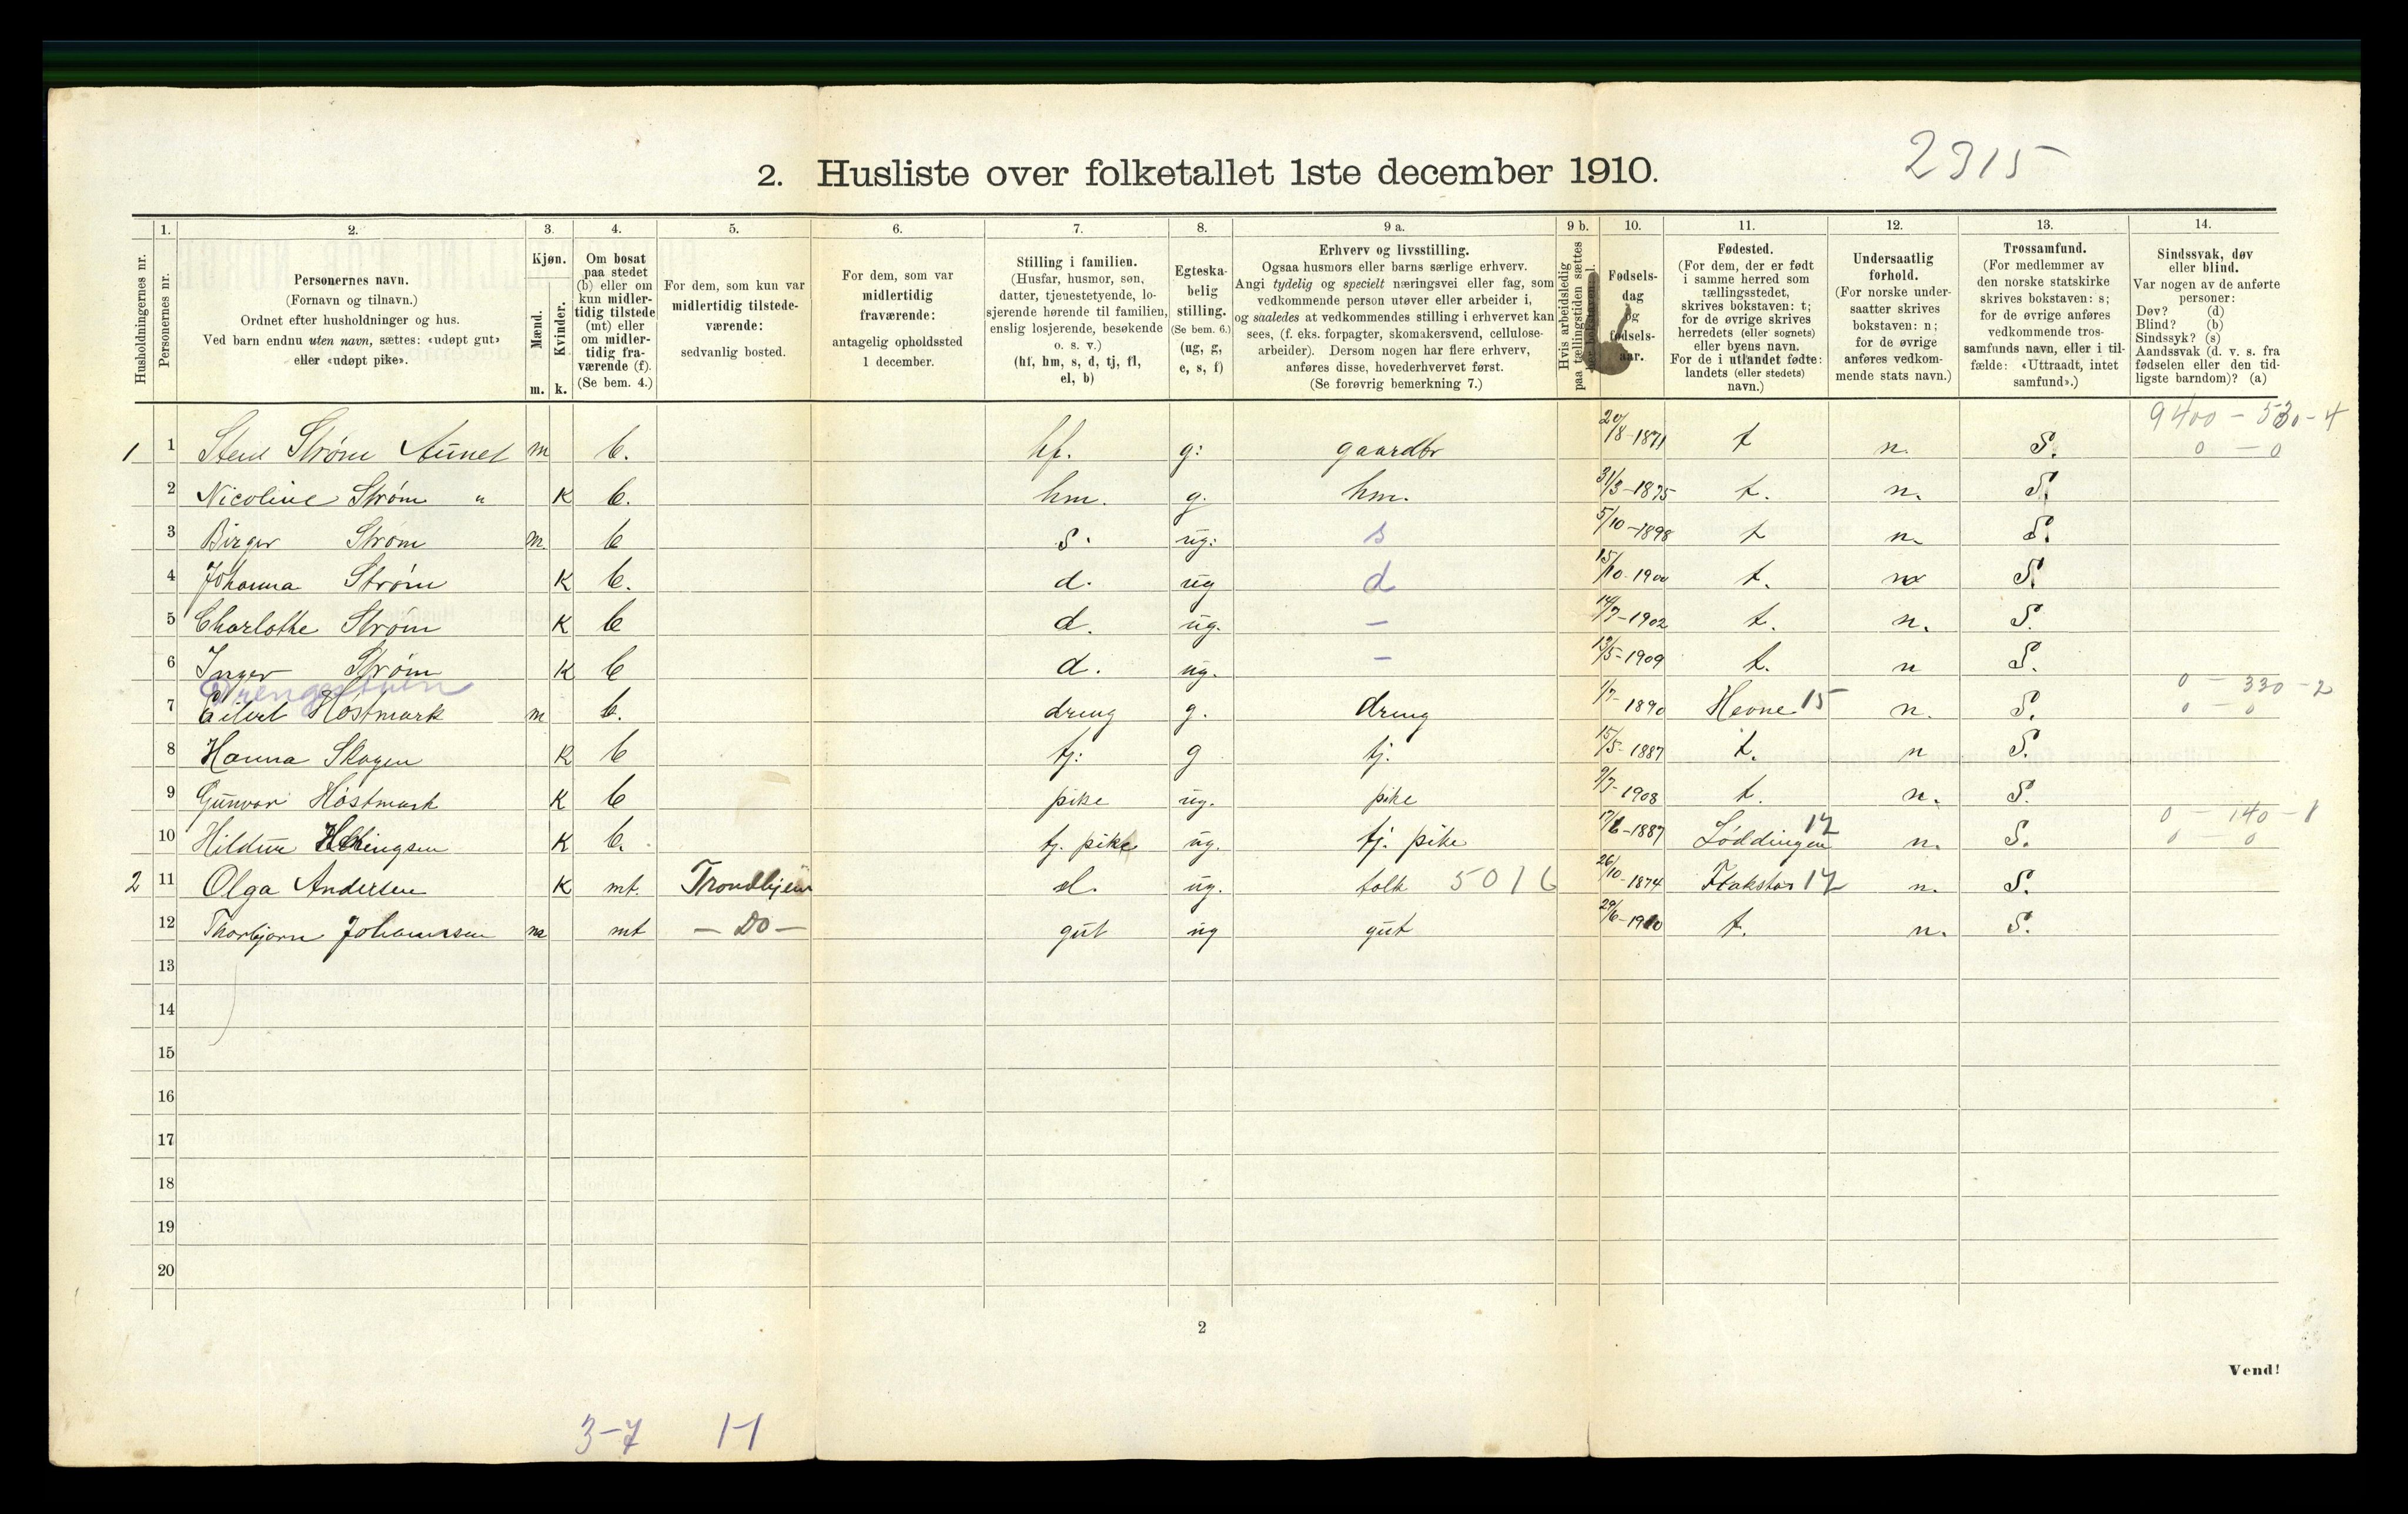 2315
2. Husliste over folketallet 1ste december 1910.
Husholdningernes nr.
1.
Personernes nr.
2.
Personernes navn.
(Fornavn og tilnavn.)
Ordnet efter husholdninger og hus.
Ved barn endnu uten navn, sættes: «udøpt gut»
eller «udøpt pike».
3.
Kjøn.
Mænd.
Kvinder.
m. k.
4.
Om bosat
paa stedet
(b) eller om
kun midler-
tidig tilstede
(mt) eller
om midler-
tidig fra-
værende (f).
(Se bem. 4.)
5.
For dem, som kun var
midlertidig tilstede-
værende:
sedvanlig bosted.
6.
For dem, som var
midlertidig
fraværende:
antagelig opholdssted
1 december.
7.
Stilling i familien.
(Husfar, husmor, søn,
datter, tjenestetyende, lo-
sjerende hørende til familien,
enslig losjerende, besøkende
o. s. v.)
(hf, hm, s, d, tj, fl,
el, b)
8.
Egteska-
belig
stilling.
(Se bem. 6.)
(ug, g,
e, s, f)
9 a.
Erhverv og livsstilling.
Ogsaa husmors eller barns særlige erhverv.
Angi tydelig og specielt næringsvei eller fag, som
vedkommende person utøver eller arbeider i,
og saaledes at vedkommendes stilling i erhvervet kan
sees, (f. eks. forpagter, skomakersvend, cellulose-
arbeider). Dersom nogen har flere erhverv,
anføres disse, hovederhvervet først.
(Se forøvrig bemerkning 7.)
9 b.
Hvis arbeidsledig
paa tællingstiden sættes
her bokstaven: l.
10.
Fødsels-
dag
og
fødsels-
aar.
11.
Fødested.
(For dem, der er født
i samme herred som
tællingsstedet,
skrives bokstaven: t;
for de øvrige skrives
herredets (eller sognets)
eller byens navn.
For de i utlandet fødte:
landets (eller stedets)
navn.)
12.
Undersaatlig
forhold.
(For norske under-
saatter skrives
bokstaven: n;
for de øvrige
anføres vedkom-
mende stats navn.)
13.
Trossamfund.
(For medlemmer av
den norske statskirke
skrives bokstaven: s;
for de øvrige anføres
vedkommende tros-
samfunds navn, eller i til-
fælde: «Uttraadt, intet
samfund».)
14.
Sindssvak, døv
eller blind.
Var nogen av de anførte
personer:
Døv? (d)
Blind? (b)
Sindssyk? (s)
Aandssvak (d. v. s. fra
fødselen eller den tid-
ligste barndom)? (a)
9400 - 530 - 4
1 1 Sten Strøm Aunet m b. hf. g: gaardbr 20/8-1871 t n. S. 0 - 0
2 Nicoline Strøm " K b. hm. g. hm. 31/3-1875 t. n. S.
3 Birger Strøm m. b s. ug: s 5/10-1898 t n. S.
4 Johanna Strøm K b. d. ug d 15/10-1900 t. n S.
5 Charlothe Strøm K b d. ug. - 14/7-1902 t. n. S.
6 Inger Strøm K b d. ug. - 13/5-1909 t. n S.
Drengestuen 0 - 330 - 2
7 Eilert Høstmark m b. dreng g. dreng 1/7-1890 Hevne 15 n. S. 0 - 0
8 Hanna Skogen K b tj: g tj. 15/5-1887 t. n S.
9 Gunvor Høstmark K b pike ug. pike 9/7-1908 t. n. S.
0 - 140 - 1
10 Hildur K b. tj. pike ug. tj. pike 17/6-1887 Løddingen 17 n. S. 0 - 0
2 11 Olga Andersen K mt. Trondhjem el. ug. tolk 5016 26/10-1874 17 n. S.
12 Thorbjørn Johannsen m mt - Do - gut ug gut 29/6-1910 t. n. S.
13
14
15
16
17
18
19
20
2
Vend!
3-7 1-1